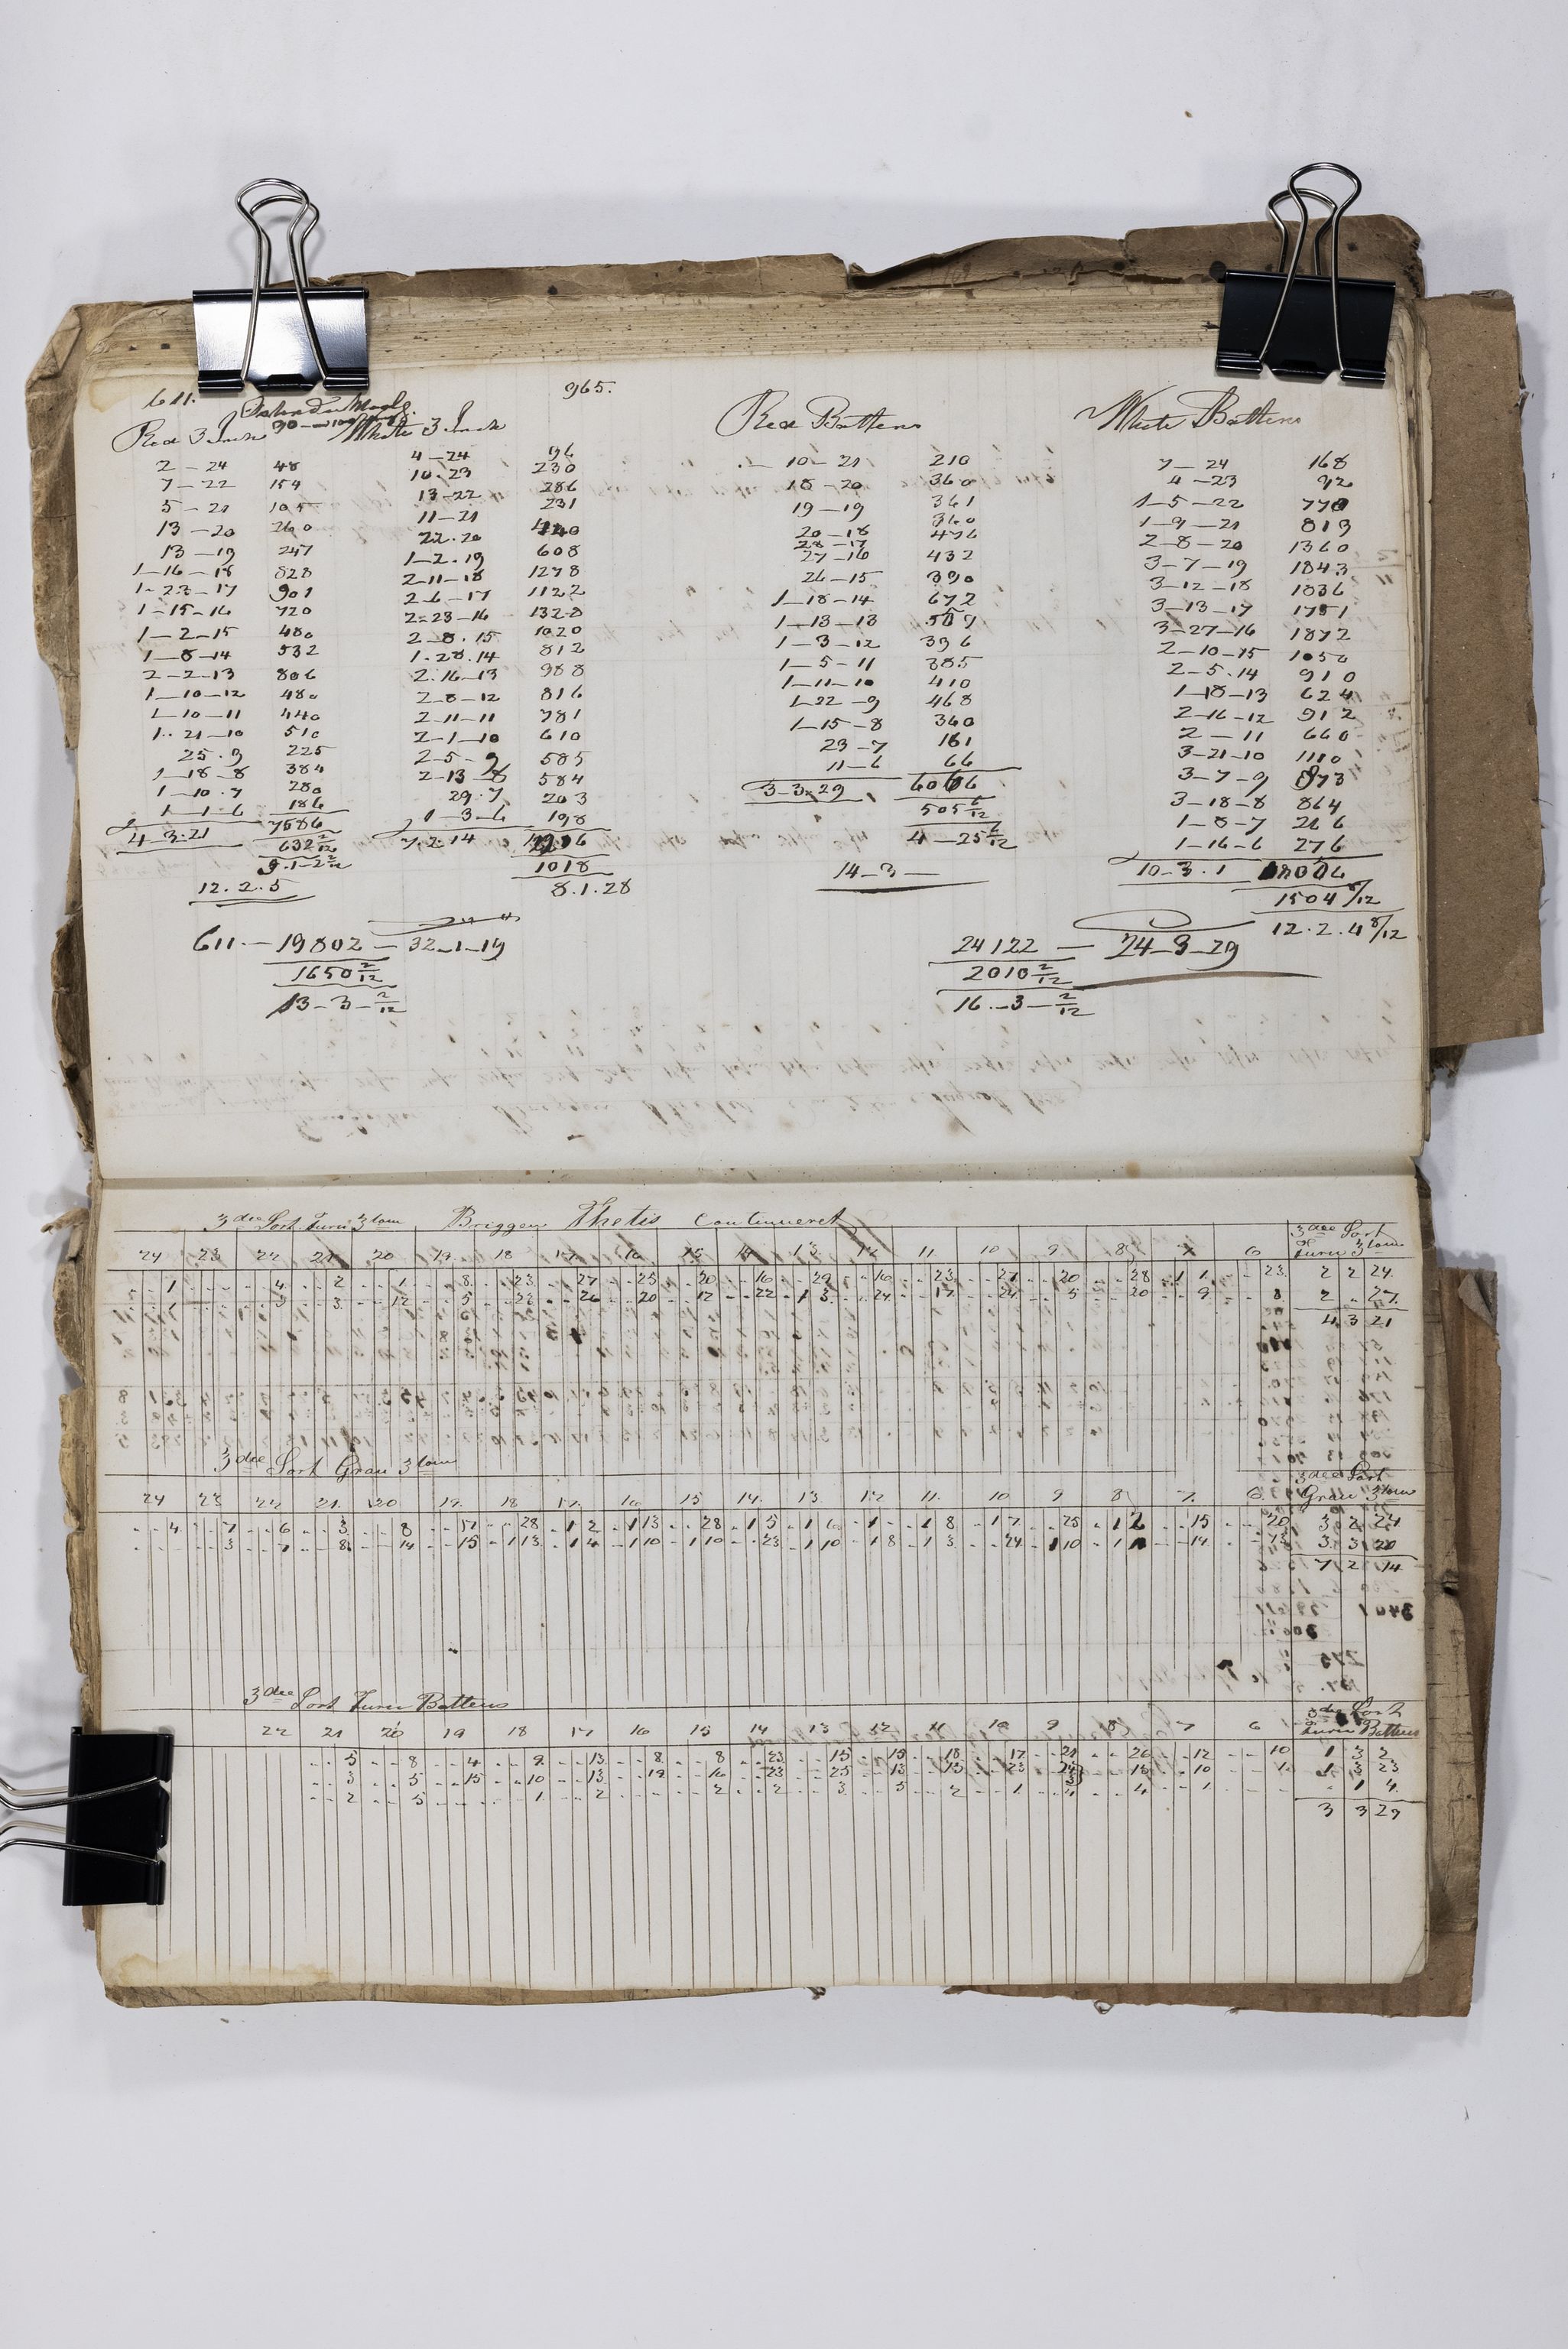 611. 965.
Red 3 Inch White 3 Inch Red Battens White Battens
2 – 24 48
7 – 22 154
5 – 21 105
13 – 20 260
13 – 19 247
1–16–18 828
1–23–17 901
1–15–16 720
1–2–15 480
1–8–14 532
2–2–13 806
1–10–12 480
1–10–11 440
1–21–10 510
25.9 225
1–18–8 384
1–10.7 280
1–1–6 186
4–3.21 7586
632 2/12
5.1–2 2/12
12.2.5
4–24 96
10.23 230
13–22 286
11–21 231
22.20 440
1–2.19 608
2–11–18 1278
2–6–17 1122
2–23–16 1328
2–8.15 1020
1.28.14 812
2.16–13 988
2–8–12 816
2–11–11 781
2–1–10 610
2–5–9 585
2–13–8 584
29.7 203
1–3–6 198
7.2.14
1018
8.1.28
10–21 210
18–20 360
19–19 361
20–18 360
28–17 476
27–16 432
26–15 390
1–18–14 672
1–13–13
1–3–12 396
1–5–11 385
1–11–10 410
1–22–9 468
1–15–8 360
23–7 161
11–6 66
3–3.29 6066
505 6/12
4–25 6/12
14–3–
7–24 168
4–23 92
1–5–22 770
1–9–21 819
2–8–20 1360
3–7–19 1843
3–12–18 1836
3–13–17 1751
3–27–16 1872
2–10–15 1050
2–5.14 910
1–18–13 624
2–16–12 912
2–11 660
3–21–10 1110
3–7–9 873
3–18–8 864
1–8–7 266
1–16–6 276
10–3.1
1504 8/12
12.2.4 8/12
611.–19802–32–1–19
1650 2/12
13–3– 2/12
24122 – 24–3–29
2010 2/12
16.–3– 2/12
3dee Sort Furu 3 tom Briggen Thetis Continueret
3dee Sort Furu 3 tom
24 23 22 21 20 19 18 17 16 15 14 13 12 11 10 9 8 7 6
1 4 2 1 8 23 27 25 20 10 29 16 23 27 20 28 1 1 23 2 2 24
1 3 3 12 5 22 26 20 12 22 1 3 24 17 24 5 20 9 8 2 . 27
4 3 21
3dee Sort Gran 3 tom
3dee Sort Gran 3 tom
24 23 22 21 20 19 18 17 16 15 14 13 12 11 10 9 8 7 6
4 7 6 3 8 17 28 1 2 1 13 28 1 5 1 6 1 1 8 1 7 25 1 2 15 20 3 2 24
3 7 8 14 15 1 13 1 4 1 10 1 10 23 1 10 1 8 1 3 24 1 10 1 14 13 3 3 20
7 2 14
3dee Sort Furu Battens
3dee Sort Furu Battens
22 21 20 19 18 17 16 15 14 13 12 11 10 9 8 7 6
5 8 4 9 13 8 8 23 15 15 18 17 21 26 12 10 1 3 2
3 5 15 10 13 19 16 23 25 13 15 23 24 18 10 1 1 3 23
2 5 1 2 2 2 3 5 2 1 4 4 1 . 1 4
3 3 29